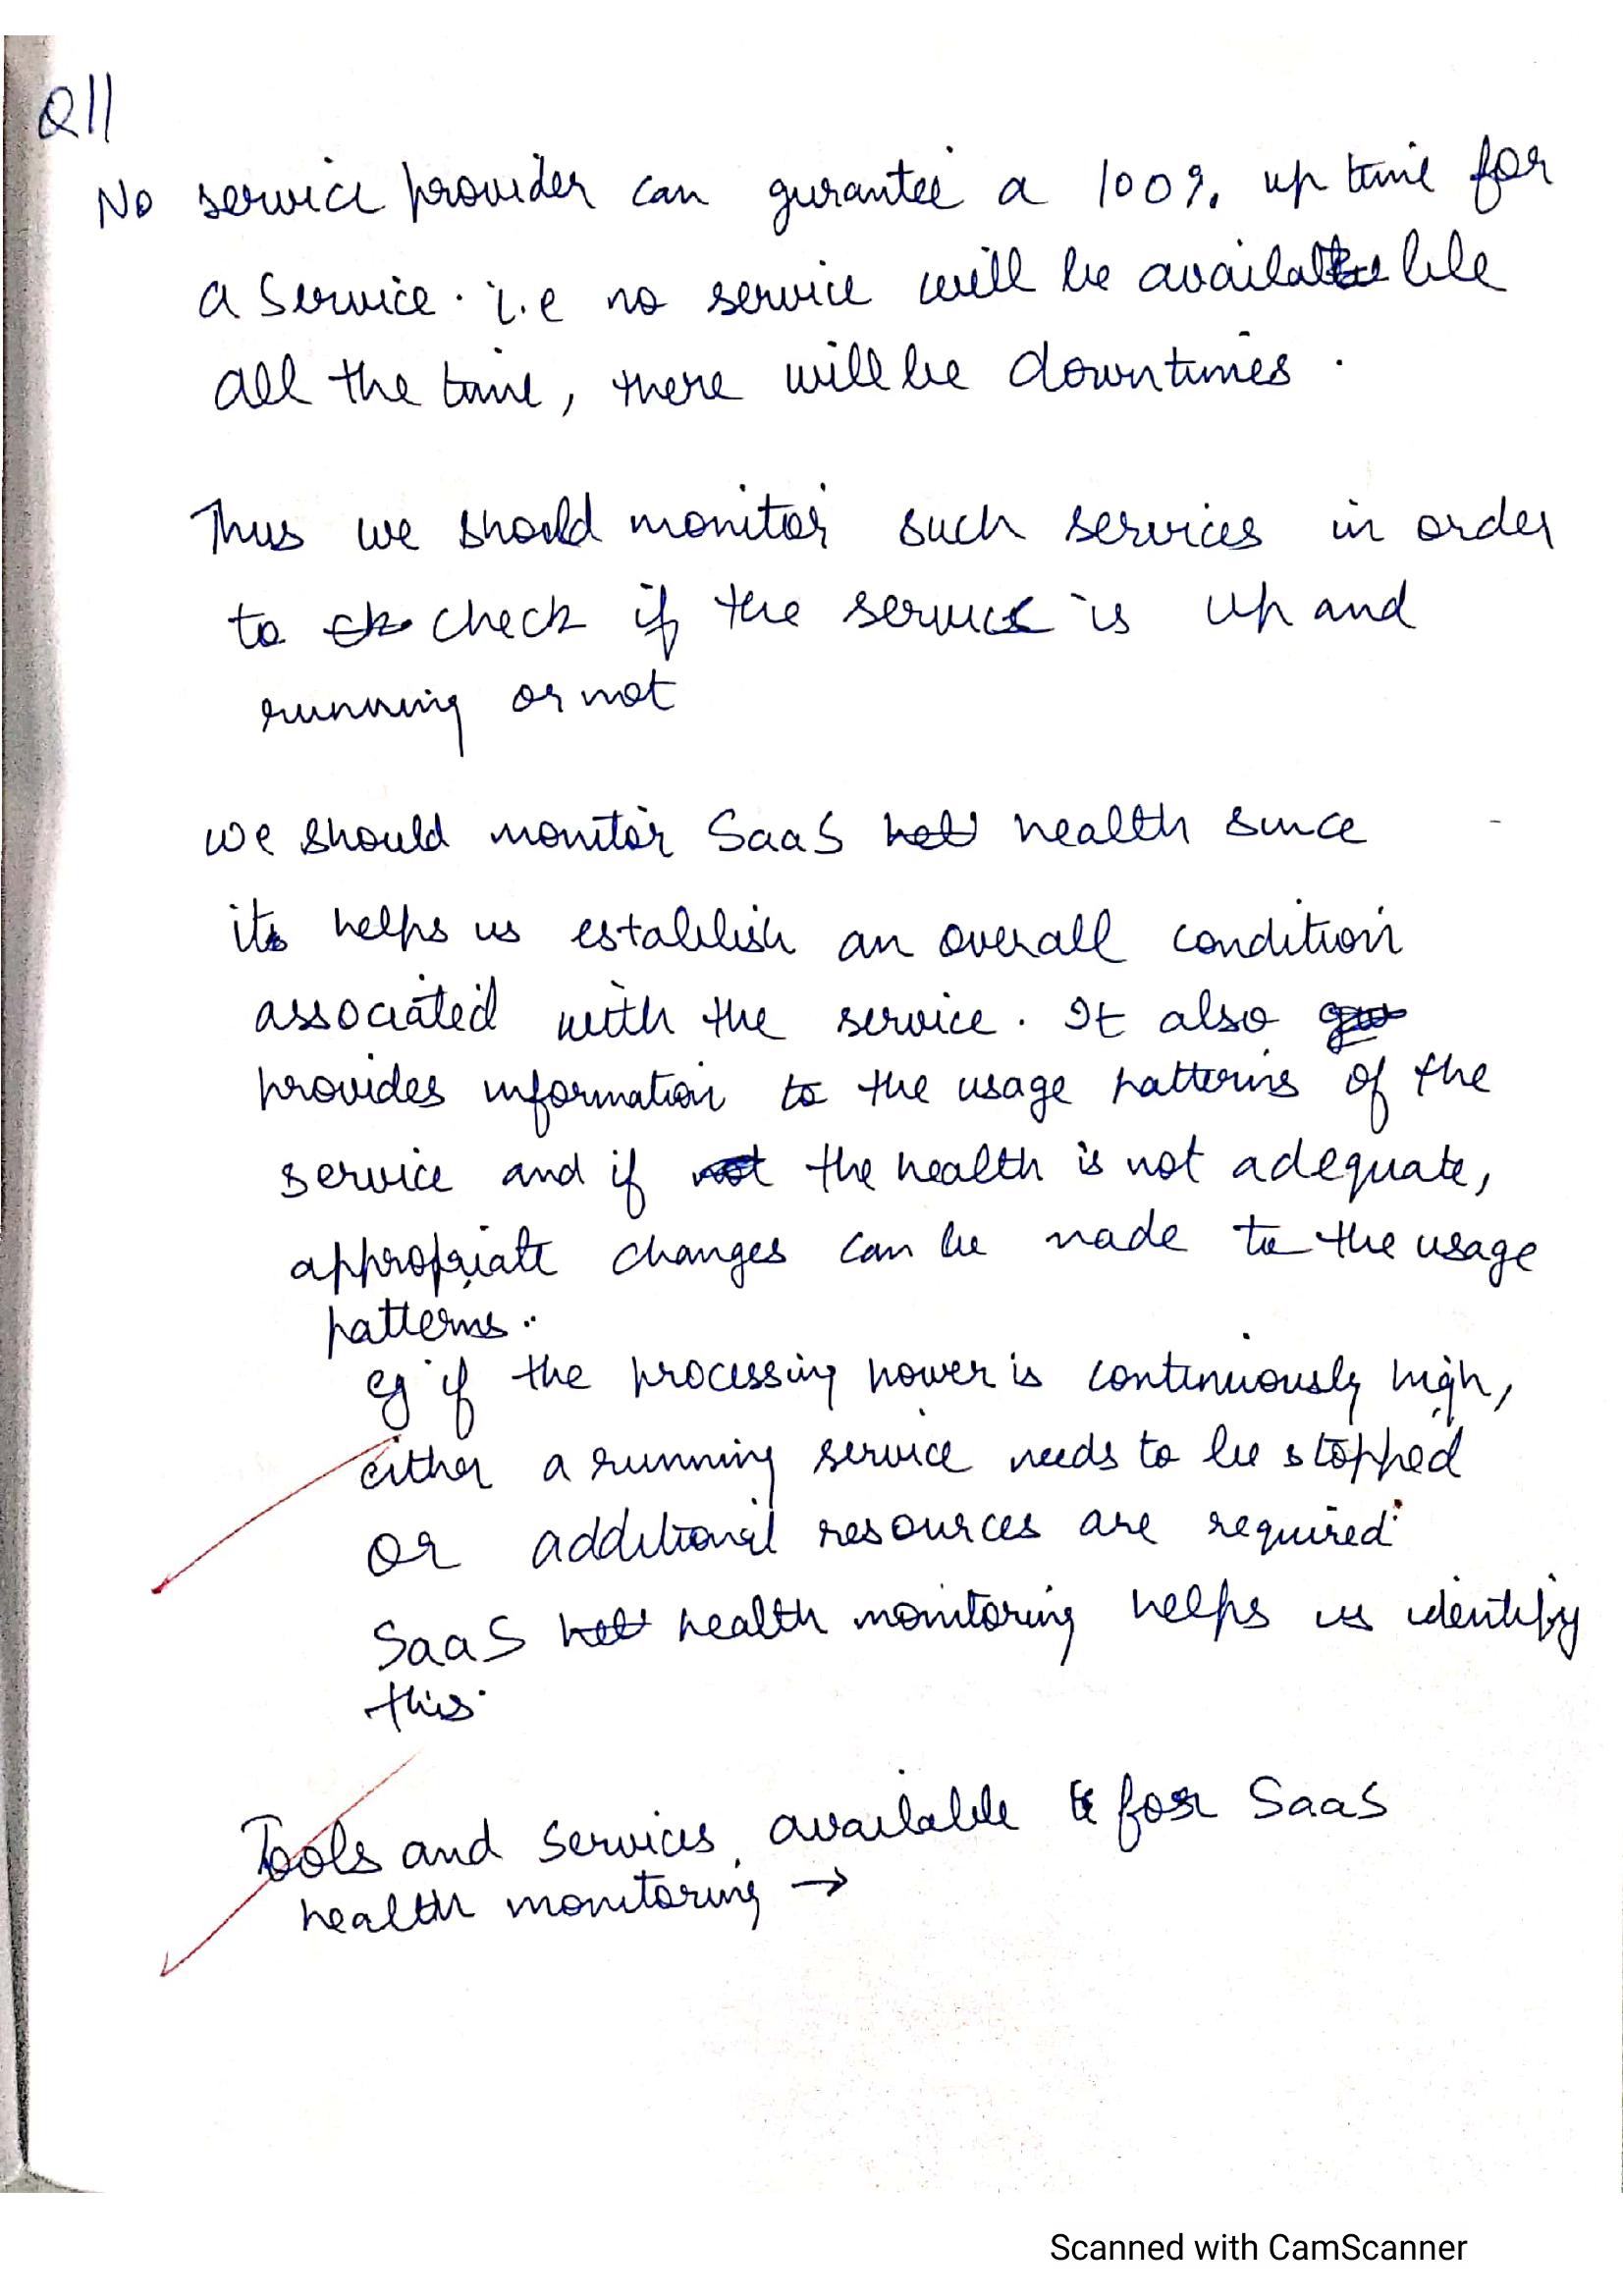 Q11
No service provider can gurantee a 100% up time for
a service. i.e no service will be available
all the time, there will be downtimes.
Thus we should monitor such services in order
to check if the service is up and
running or not
we should monitor SaaS health since
it helps us establish an overall condition
associated with the service. It also
provides information to the usage patterns of the
service and if the health is not adequate,
appropriate changes can be made to the usage
patterns.
eg if the processing power is continuously high,
either a running service needs to be stopped
or additional resources are required.
SaaS health monitoring helps us identify
this.
Tools and services available for SaaS
health monitoring →
Scanned with CamScanner